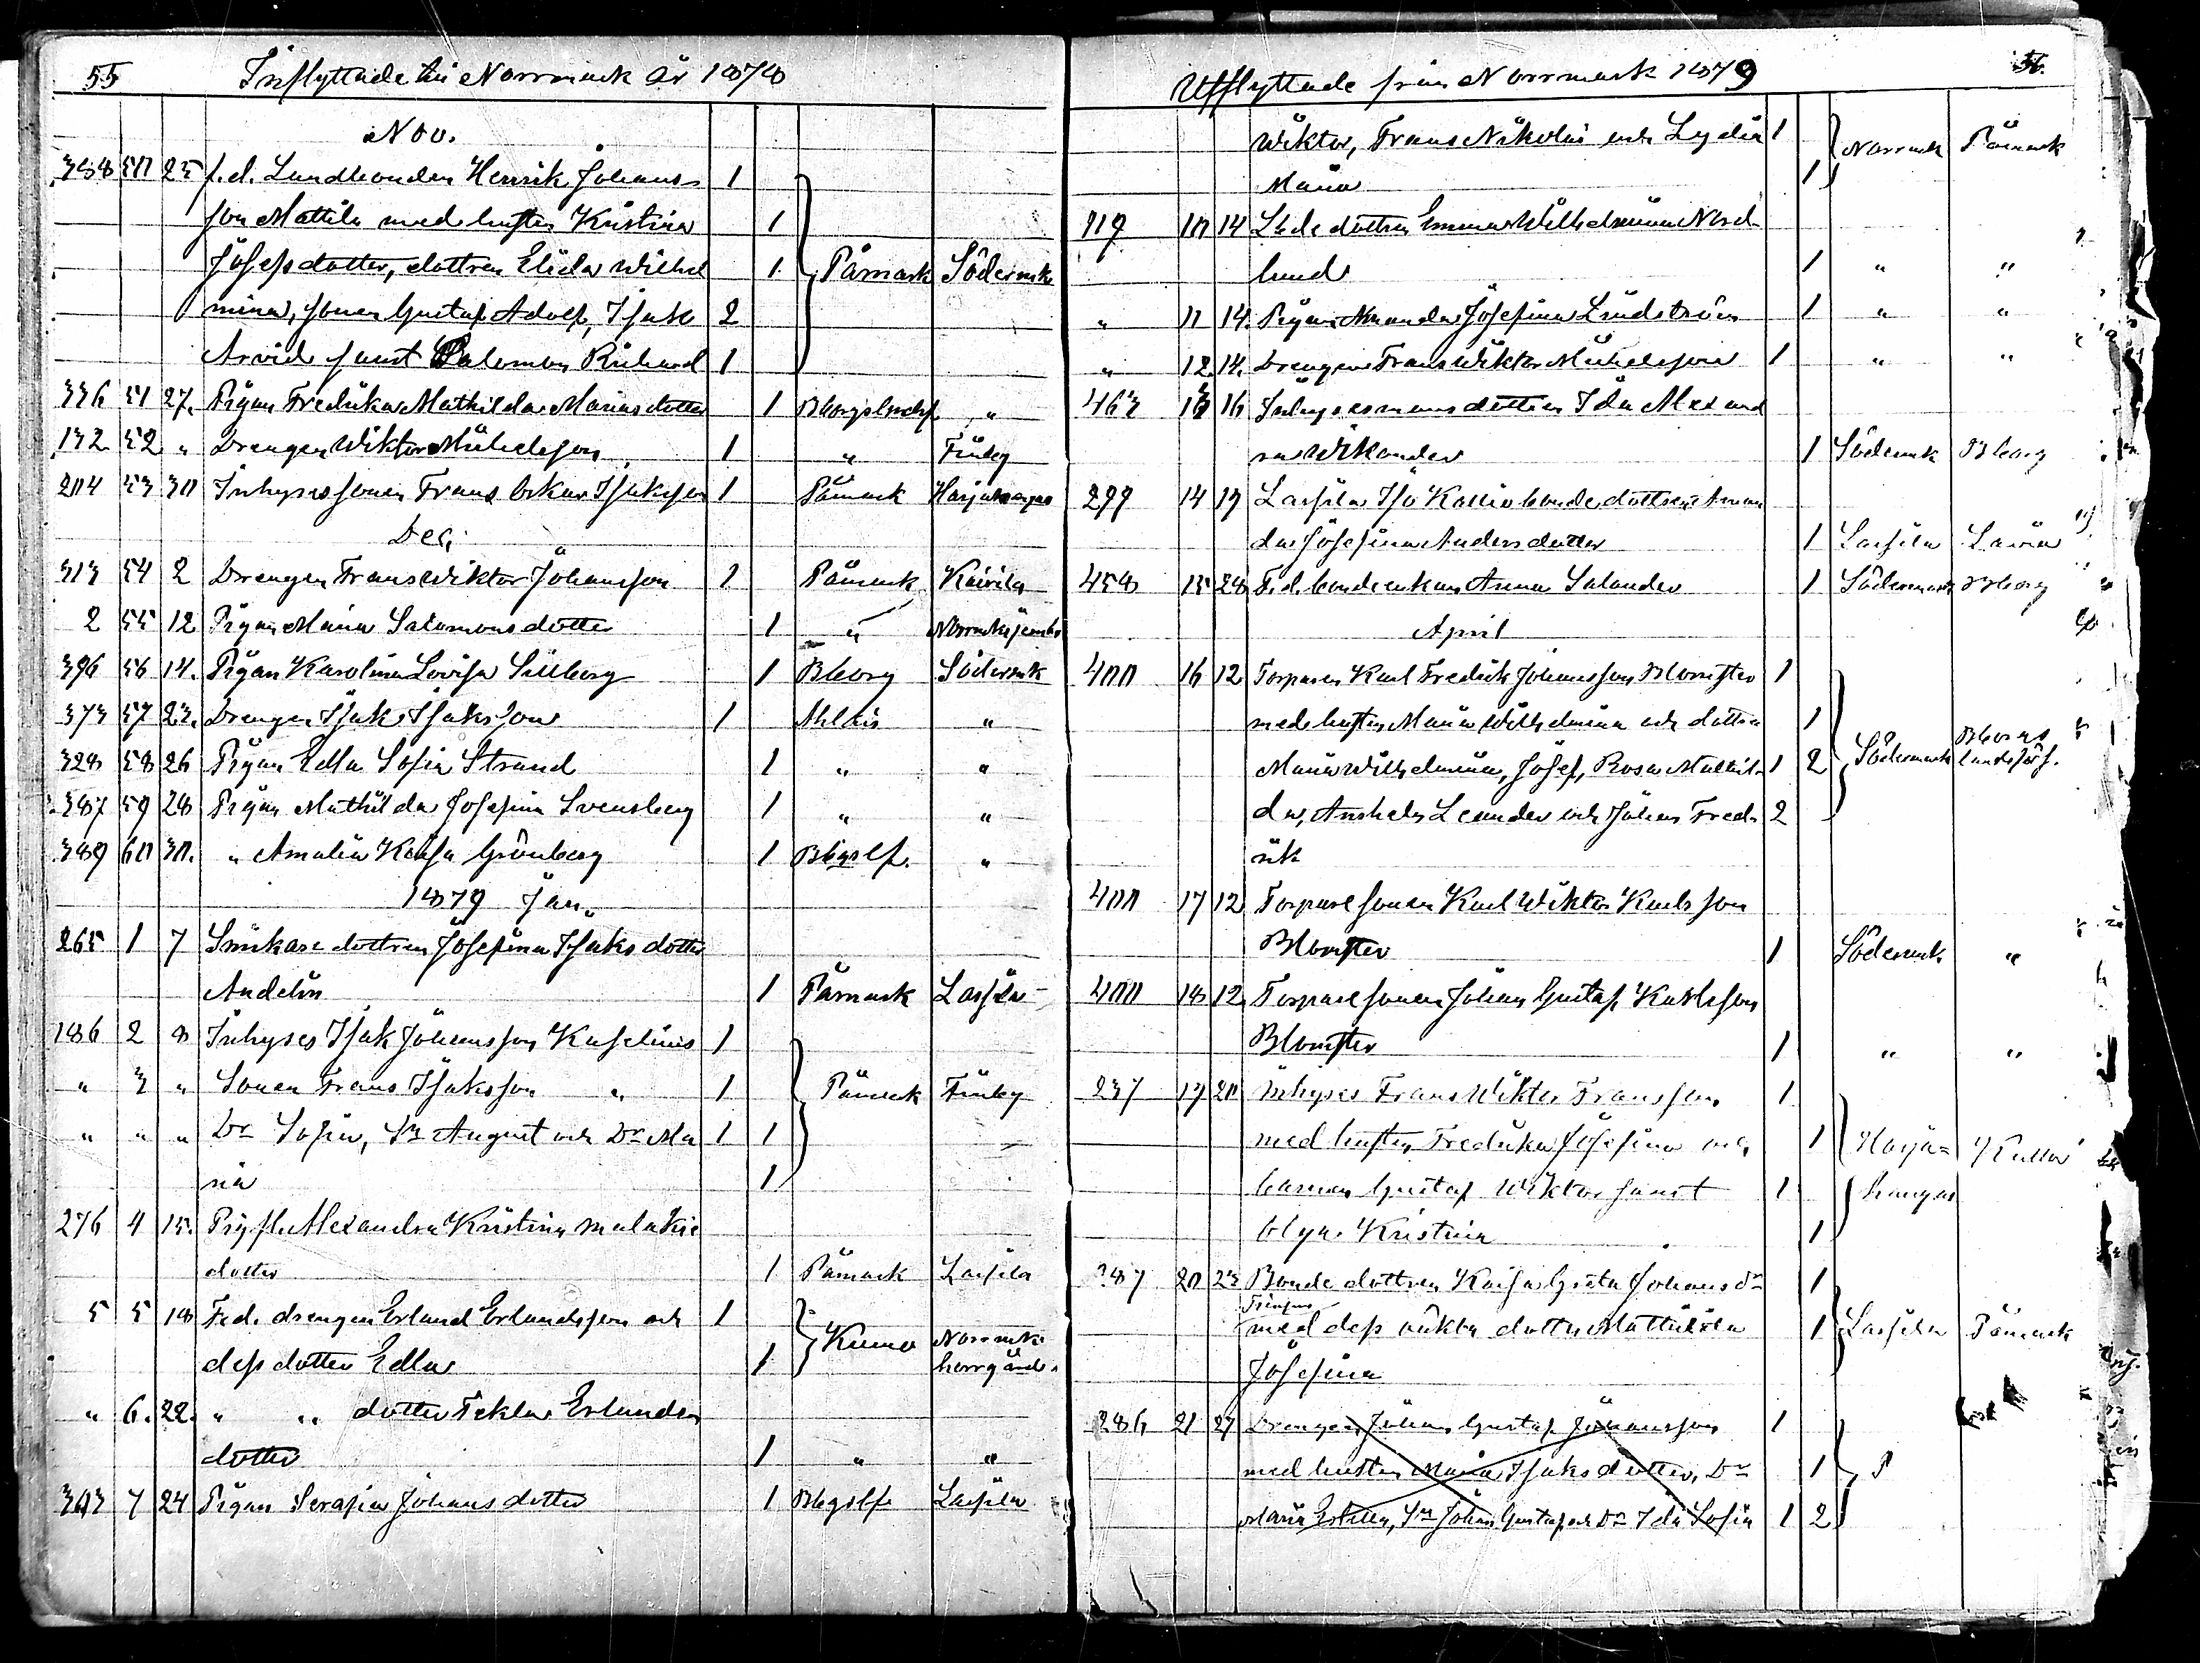 55 Inflyttade till Norrmark år 1878
Nov.
358 50 25 f.d. Landbonden Henrik Johans- 1
son Mattila med hustru Kristina 1
Josefsdotter, dottren Elida Wilhel 1 Påmark Södermk
mina, sonen Gustaf Adolf, Isak 2
Arvid samt Salomon Richard 1
336 51 27. Pigan Fredrika Mathilda Mariasdotter 1 Bborgs landsf "
132 52 " Drengen Wiktor Mickelsson 1 " Finby
204 53 30 Inhysessonen Frans Oskar Isaksson 1 Påmark Harjakangas
Dec.
313 54 2 Drengen Frans Wiktor Johansson 1 Påmark Kairila
2 55 12 Pigan Maria Salomonsdotter 1 "
396 56 14. Pigan Karolina Lovisa Sillberg 1 Bborg Södermk
373 57 23. Drengen Isak Isaksson 1 Ahlais "
328 58 26 Pigan Edla Sofia Strand 1 " "
387 59 28 Pigan Mathilda Josefina Svensberg 1 " "
389 60 30. " Amalia Kajsa Grönberg 1 Bbgslf. "
1879 Jan.
265 1 7 dottren Josefina Isaksdotter
Andelin 1 Påmark Lassila
186 2 8 Inhyses Isak Johansson Kaselius 1
" 3 " Sonen Frans Isaksson " 1 Påmark Finby
" " " Dr Sofia, Sn August och Dr Ma 1 1
ria 1
276 4 15. Alexandra Kristina Malakie
dotter 1 Påmark Lassila
5 5 18 F.d. drengen Erland Erlandsson och 1
dess dotter Edla 1 Kumo Norrmks herrgård
" 6. 22. " " dotter Tekla Erlands
dotter 1 " "
303 7 24 Pigan Serafia Johansdotter 1 Bbgslfs Lassila
Utflyttade från Norrmark 1879 56.
Wiktor, Frans Nikolai och Lydia 1 Norrmk Påmark
Maria 1
119 10 14 dottren Emma Wilhelmina Nord-
lund 1 " "
" 11 14. Pigan Amanda Josefina Lindström 1 " "
" 12. 14. Drengen Frans Wiktor Mickelsson 1 " "
463 13 16 Inhysesmansdottren Ida Alexand
ra Wikander 1 Södermk Bborg
299 14 19 Lassila Iso Kallio bondedottren Aman
da Josefina Andersdotter 1 Lassila Lavia
458 15 28 F.d. bondeenkan Anna Salander 1 Södermark Bborg
April
400 16 12 Torparen Karl Fredrik Johansson Blomster 1
med hustru Maria Wilhelmina och dottren 1
Maria Wilhelmina, Josef, Rosa Mathil- 1 2 Södermark Bborgs landsförs.
da, Anshelm Leander och Johan Fred- 2
rik
400 17 12 Torparesonen Karl Wiktor Karlsson
Blomster 1 Södermk. "
400 18 12 Torparesonen Johan Gustaf Karlsson
Blomster 1 " "
237 19 20 Inhyses Frans Wiktor Fransson 1
med hustru Fredrika Josefina och 1 Harja- Kullaa
barnen Gustaf Wiktor samt 1 kangas
Olga Kristina 1
287 20 23 Bondedottren Kajsa Greta Johansdr 1
med dess oäkta dotter Mathilda 1 Lassila Påmark
Josefina
286 21 27 Drengen Johan Gustaf Johansson 1
med hustru Maria Isaksdotter, Dr 1 P
Maria Sn Johan Gustaf och Dr Ida Sofia 1 2